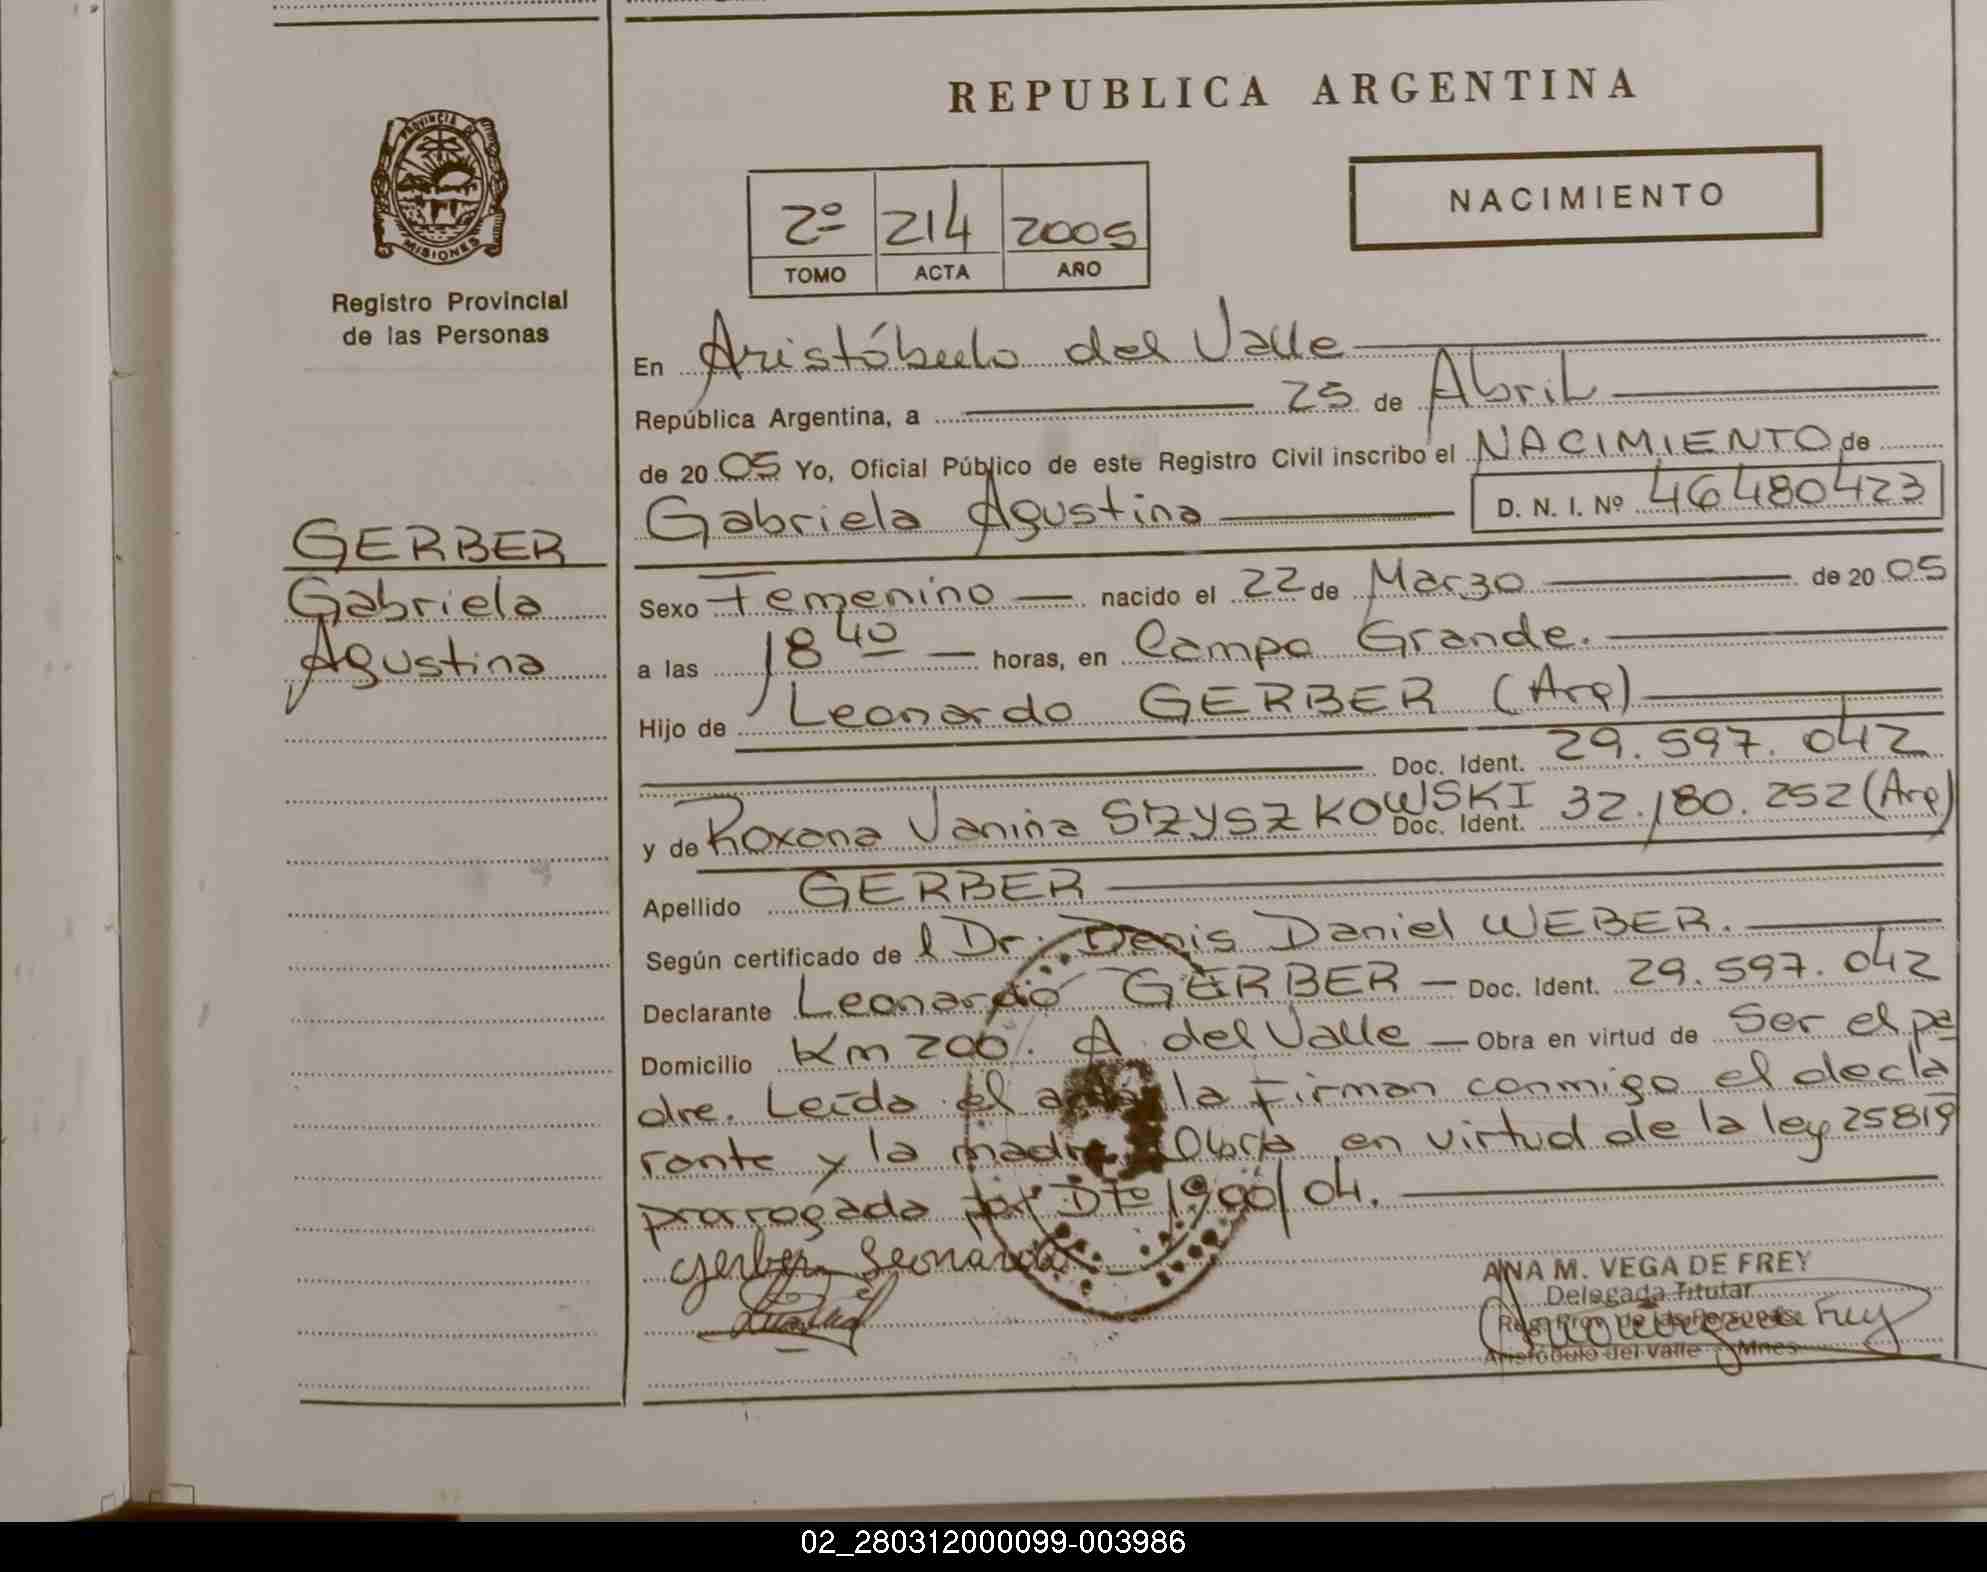 REPUBLICA ARGENTINA
PROVINCIA DE
MISIONES
Registro Provincial
de las Personas
2º 214 2005
TOMO ACTA AÑO
NACIMIENTO
En Aristóbulo del Valle
República Argentina, a 25 de Abril
de 2005 Yo, Oficial Público de este Registro Civil inscribo el NACIMIENTO de
Gabriela Agustina D. N. I. Nº 46480423
GERBER
Gabriela
Agustina
Sexo Femenino nacido el 22 de Marzo de 2005
a las 18 40 horas, en Campo Grande.
Hijo de Leonardo GERBER (Arg)
Doc. Ident. 29.597.042
y de Roxana Vanina SZYSZKOWSKI Doc. Ident. 32.180.252 (Arg)
Apellido GERBER
Según certificado de l Dr. Denis Daniel WEBER.
Declarante Leonardo GERBER Doc. Ident. 29.597.042
Domicilio Km 200. A. del Valle Obra en virtud de Ser el pa
dre. Leída el acta la Firman conmigo el decla
rante y la madre. Obra en virtud de la ley 25819
prorrogada por Dto 1900/04.
Gerber Leonardo
ANA M. VEGA DE FREY
Delegada Titular
Reg. Prov. de las Personas
Aristóbulo del Valle - Mnes.
02_280312000099-003986